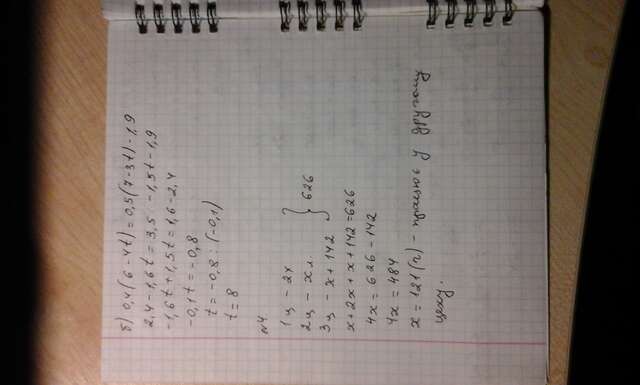 б) 0,4(6-4t)=0,5(7-3t)-1,9
2,4-1,6t=3,5-1,5t-1,9
-1,6t+1,5t=1,6-2,4
-0,1t=-0,8
t=-0,8:(-0,1)
t=8
№4.
1ц - 2x
2ц - x л.
3ц - x+142 } 626
x+2x+x+142=626
4x=626-142
4x=484
x=121(г) - працює у другому
цеху.